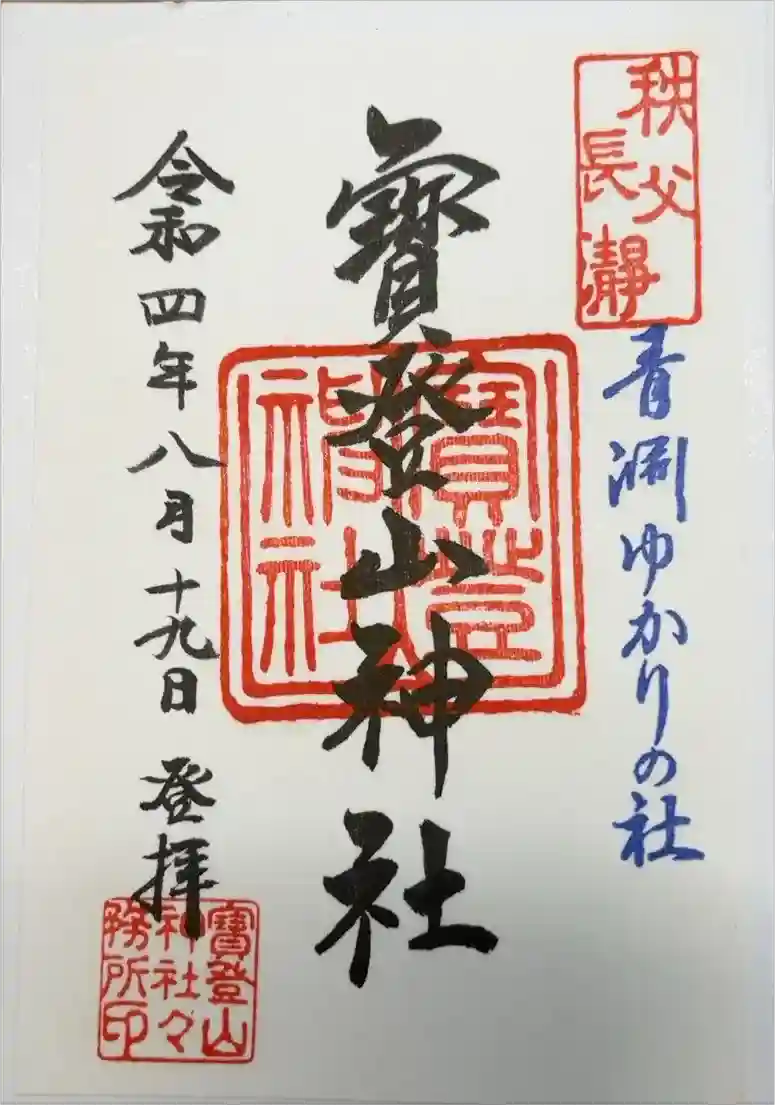 秩父
長瀞
青渊ゆかりの社
寳登山神社
令和四年八月十九日 登拝
寳登山
神社々
務所印